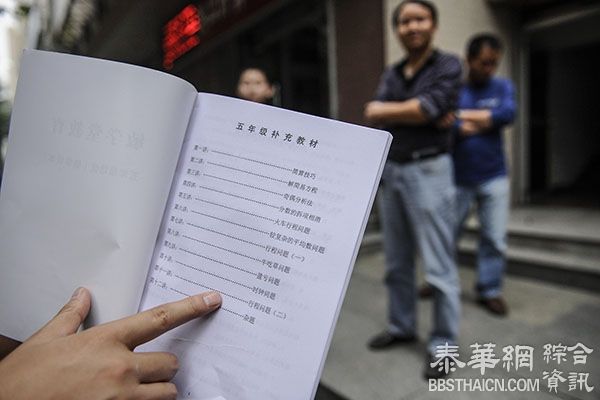 五年级补充教材
第一讲:……………………简算技巧
第二讲:……………………解简易方程
第三讲:……………………奇偶分析法
第四讲:……………………分数的拆项相消
第五讲:……………………火车行程问题
第六讲:……………………较复杂的平均数问题
第七讲:……………………行程问题（一）
第八讲:……………………牛吃草问题
第九讲:……………………盈亏问题
第十讲:……………………时钟问题
第十一讲:……………………行程问题（二）
第十二讲:……………………杂题
泰華網 綜合資訊
BBSTHAICN.COM